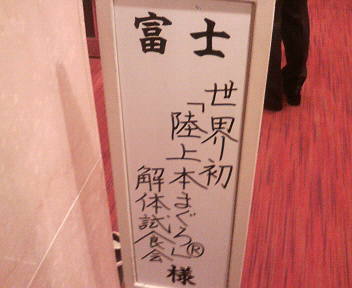 富士
世界初
「陸上本まぐろ®」
解体試食会
様